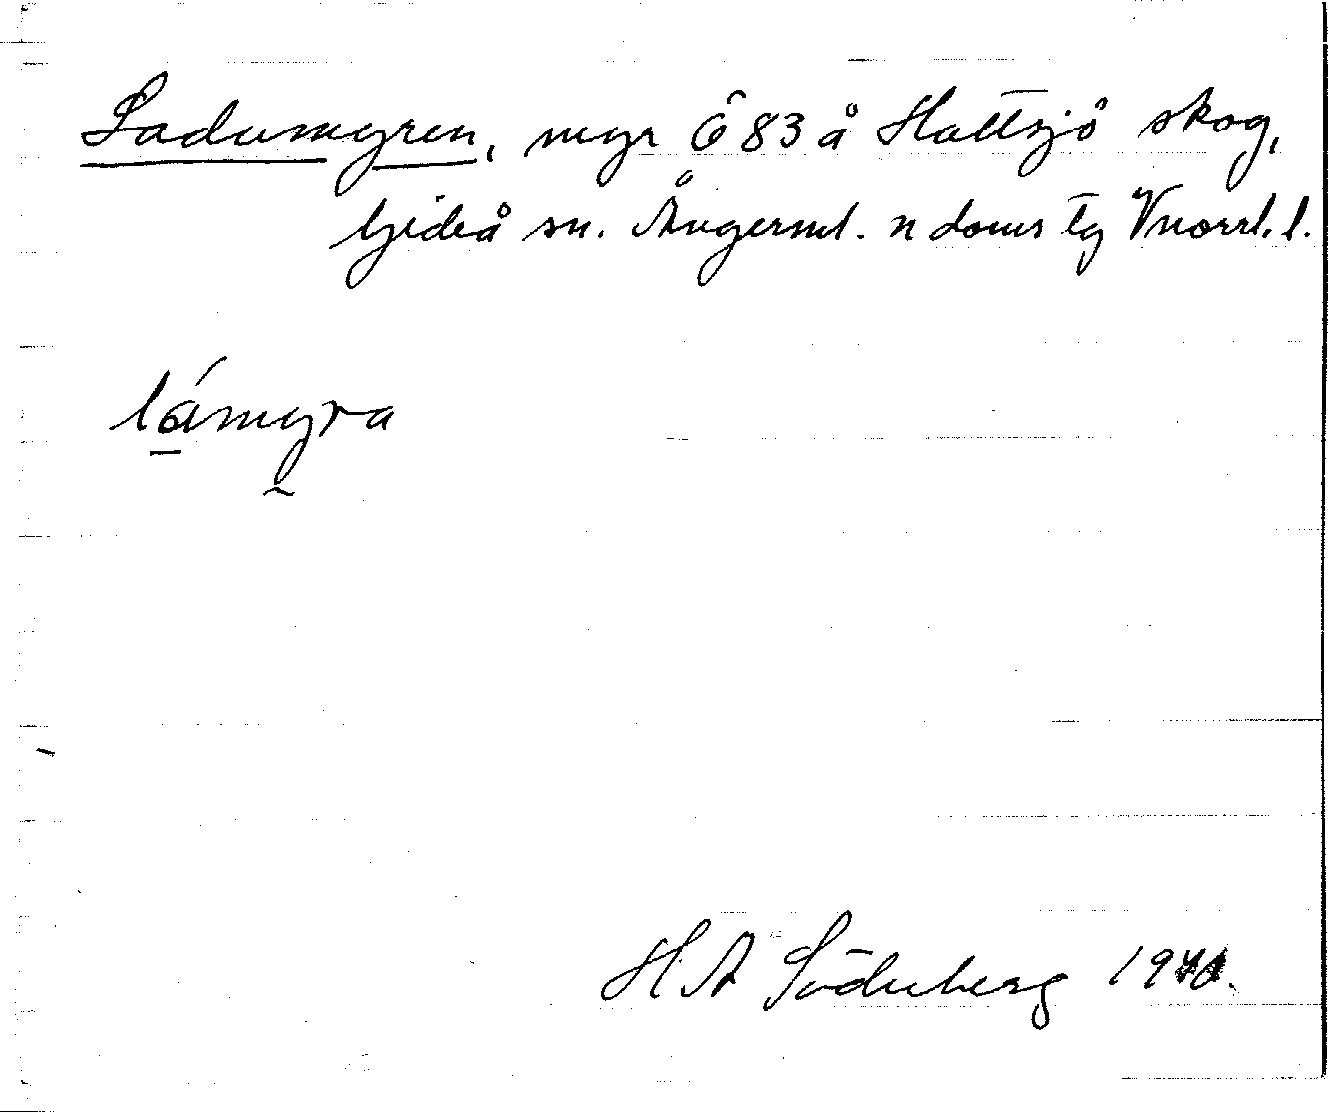 Ladumyren, myr Ö 83 å Hattsjö skog,
Gideå sn. Ångerml. n doms tg Vnorrl. l.
lámyra
H A Söderberg